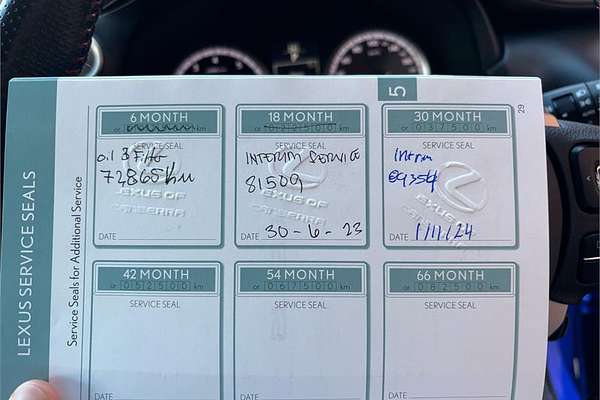 LEXUS SERVICE SEALS
Service Seals for Additional Service
5
29
6 MONTH
or km
SERVICE SEAL
72865km
LEXUS OF
CANBERRA
DATE
18 MONTH
or 022500 km
SERVICE SEAL
INTERIM SERVICE
81509
LEXUS OF
CANBERRA
DATE 30-6-23
30 MONTH
or 037500 km
SERVICE SEAL
Intrm
89354
LEXUS OF
CANBERRA
DATE 1/11/24
42 MONTH
or 052500 km
SERVICE SEAL
DATE
54 MONTH
or 067500 km
SERVICE SEAL
DATE
66 MONTH
or 082500 km
SERVICE SEAL
DATE